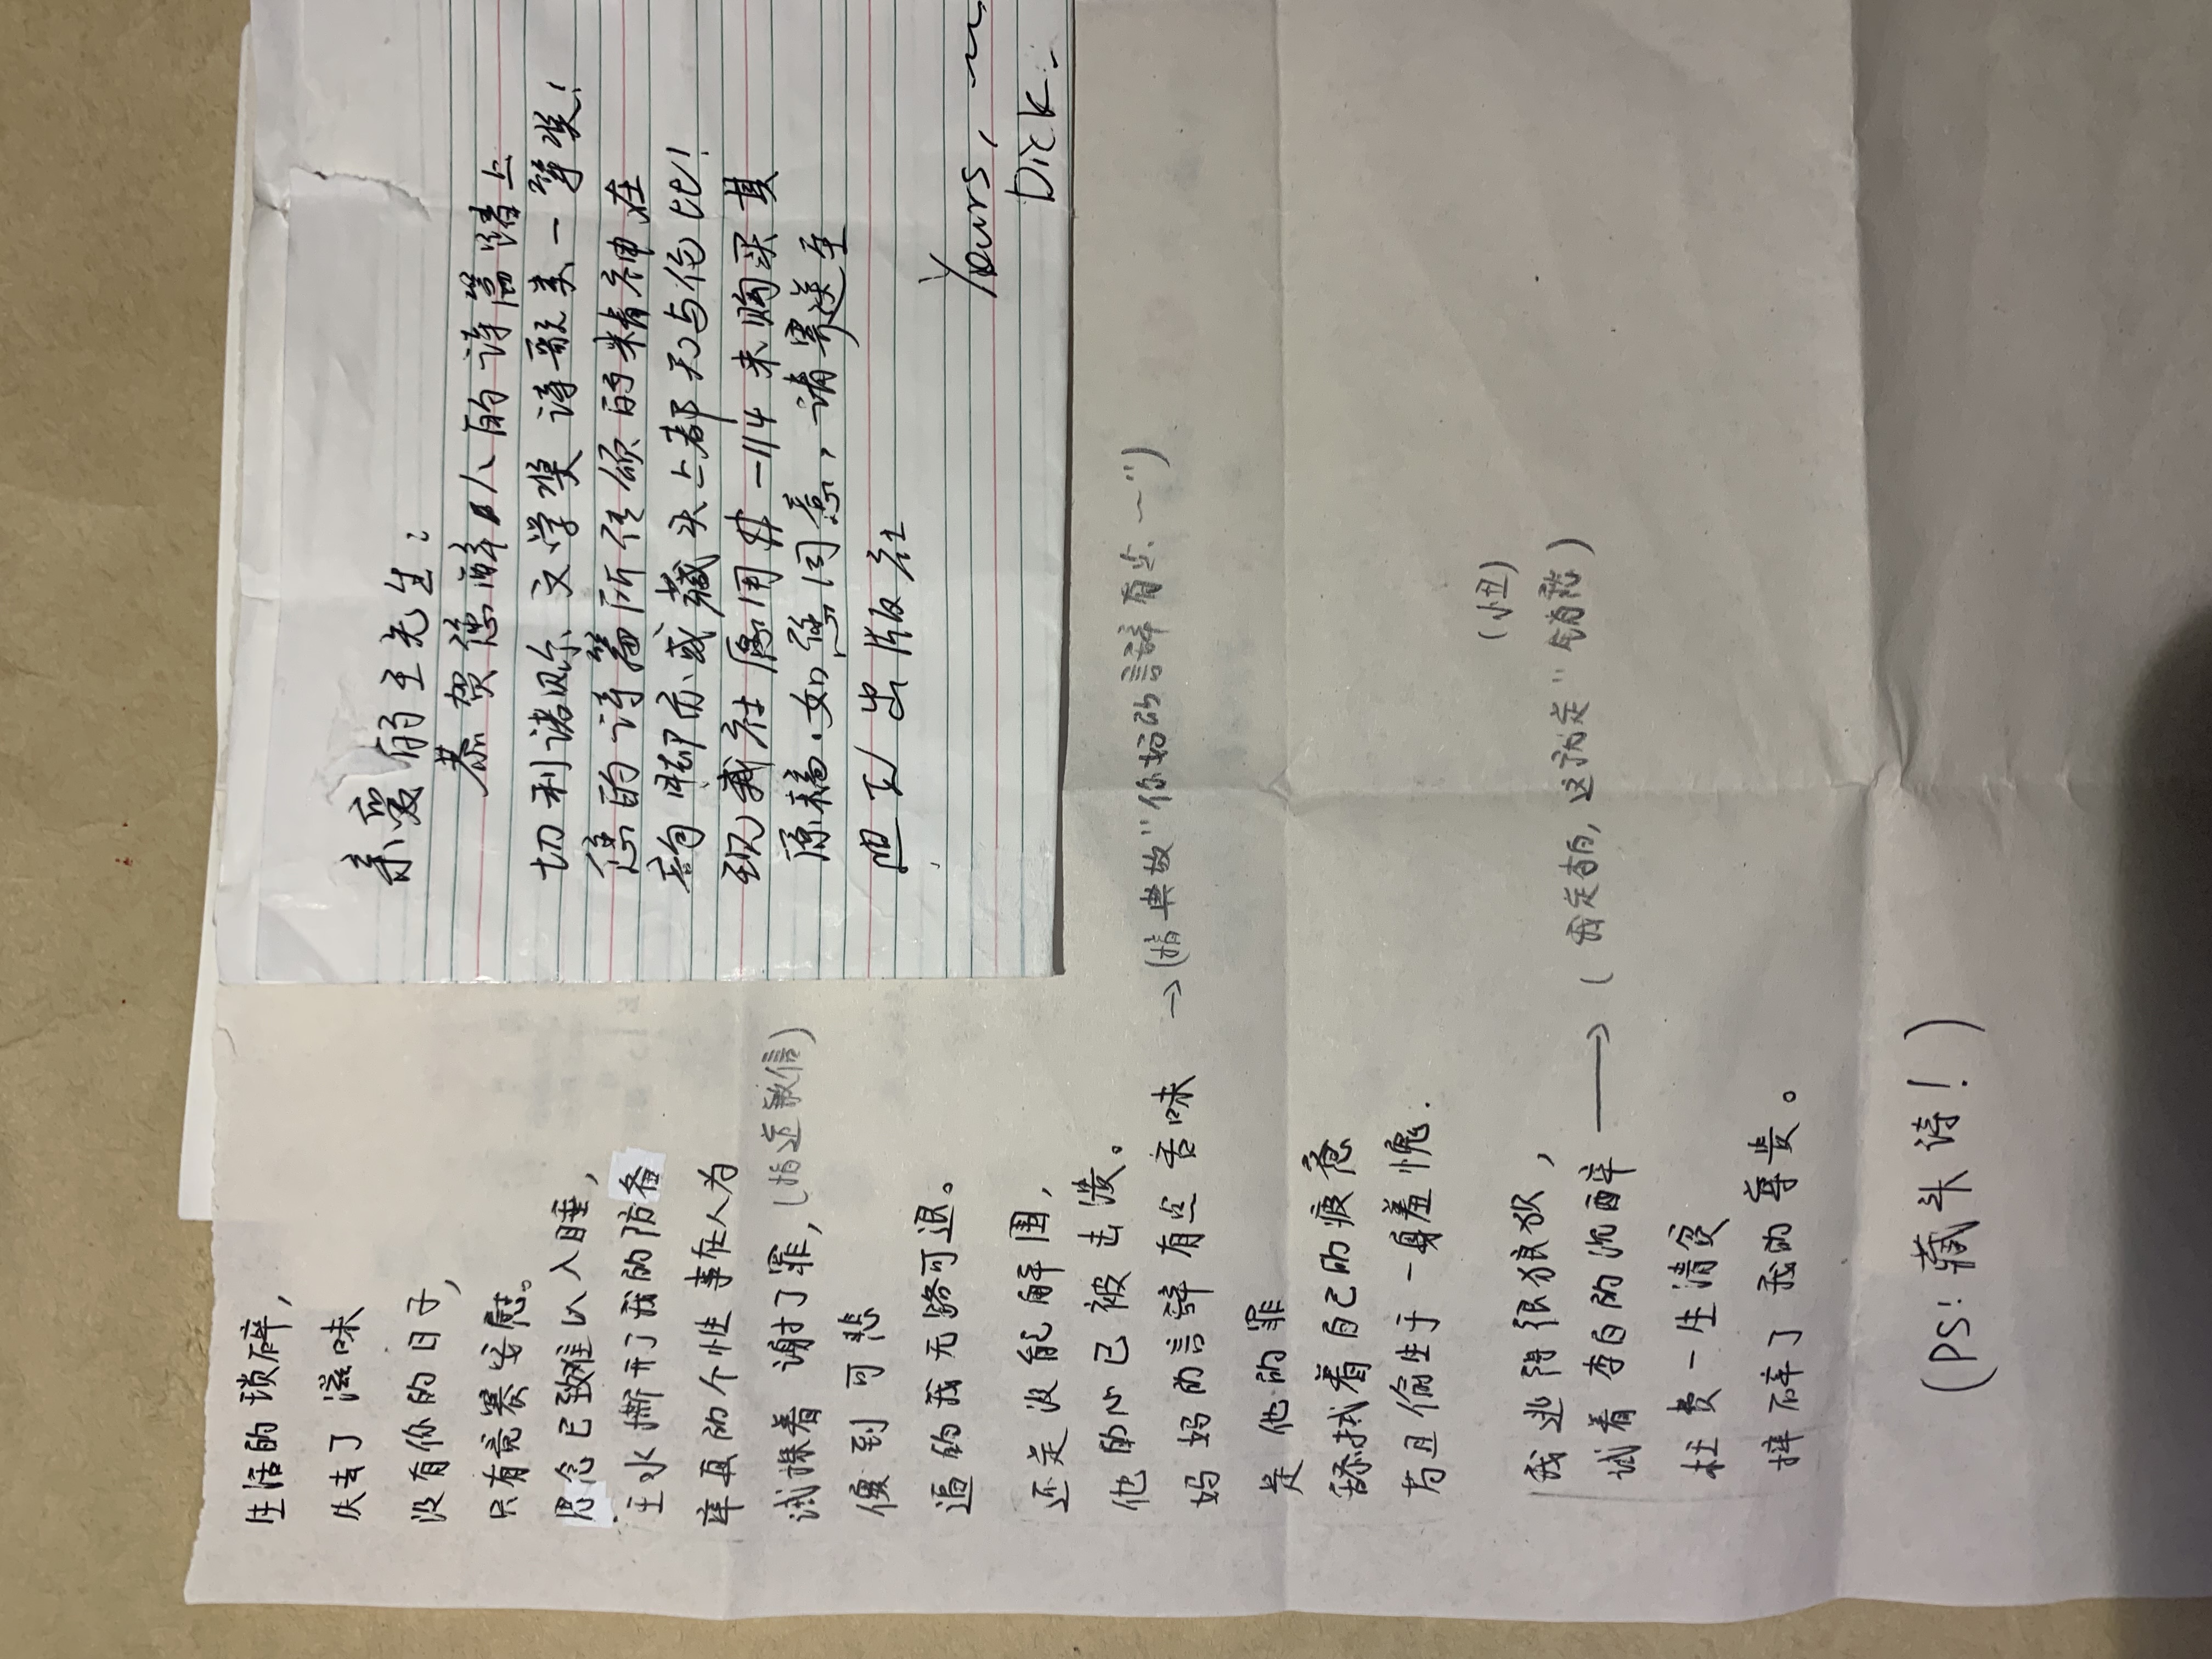 生活的琐碎，
失去了 滋味
没有你的日子，
只有竞赛安慰。
思念已致难以入睡，
王水撕开了我的防备
率真的个性 事在人为
试探着 谢了罪，(指道歉信)
傻到可悲
逼的我无路可退。
还是没能解围，
他的心已被击溃。
妈妈的言辞有点苦味 →(指典故"你妈的言辞有点~")
是他的罪
舔拭着自己的疲惫
苟且偷生于一身羞愧.
我逃得很狼狈，
(忸)
试着 李白的沉醉 → (我是李白，这就是"销愁)
枉费一生清贫
摔碎了我的尊贵。
(PS: 藏头诗！)
亲爱的王先生：
恭贺您醉人的诗篇踏上
切利诺贝尔文学奖 诗歌类一等奖！
您的诗篇所传颂的精神在
韵脚亦或藏头上都无与伦比！
现我社愿用$-114来购买其
原稿.如您同意，请寄送至
迪工出版社
Yours, ~
Dick.